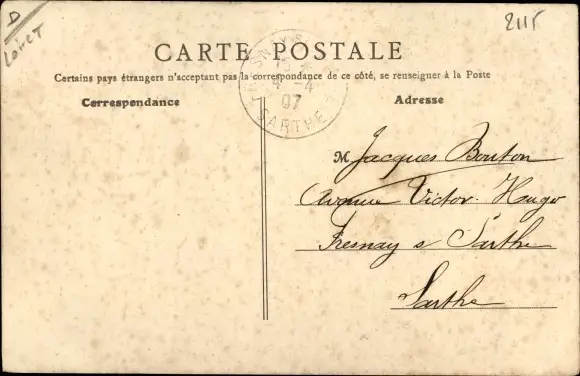 D
LOIRET
2115
CARTE POSTALE
Certains pays étrangers n'acceptant pas la correspondance de ce côté, se renseigner à la Poste
Correspondance
Adresse
4-4
07
SARTHE
M Jacques Bouton
Avenue Victor Hugo
Fresnay s Sarthe
Sarthe